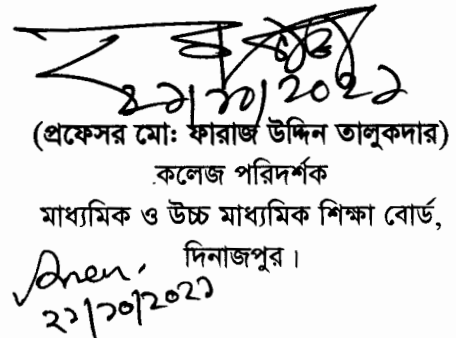 ২১/১০/2021
(প্রফেসর মো: ফারাজ উদ্দিন তালুকদার)
কলেজ পরিদর্শক
মাধ্যমিক ও উচ্চ মাধ্যমিক শিক্ষা বোর্ড,
দিনাজপুর।
২১/১০/২০২১